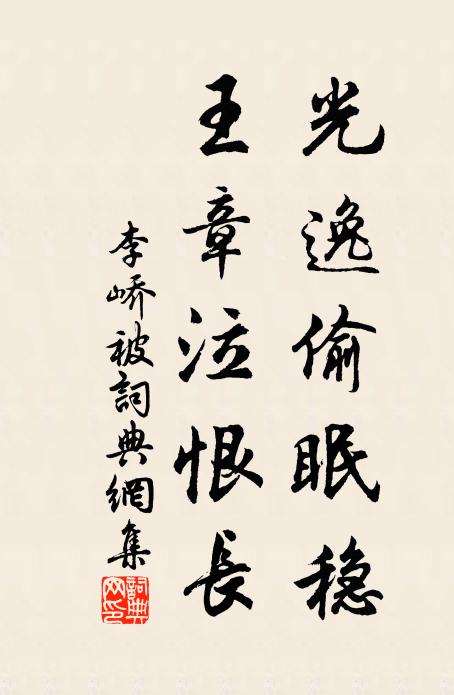 光逸偷眠稳
王章泣恨長
李嶠被詞典網集
詞典网印